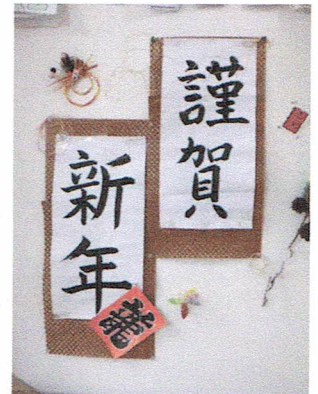 謹賀
新年
龍